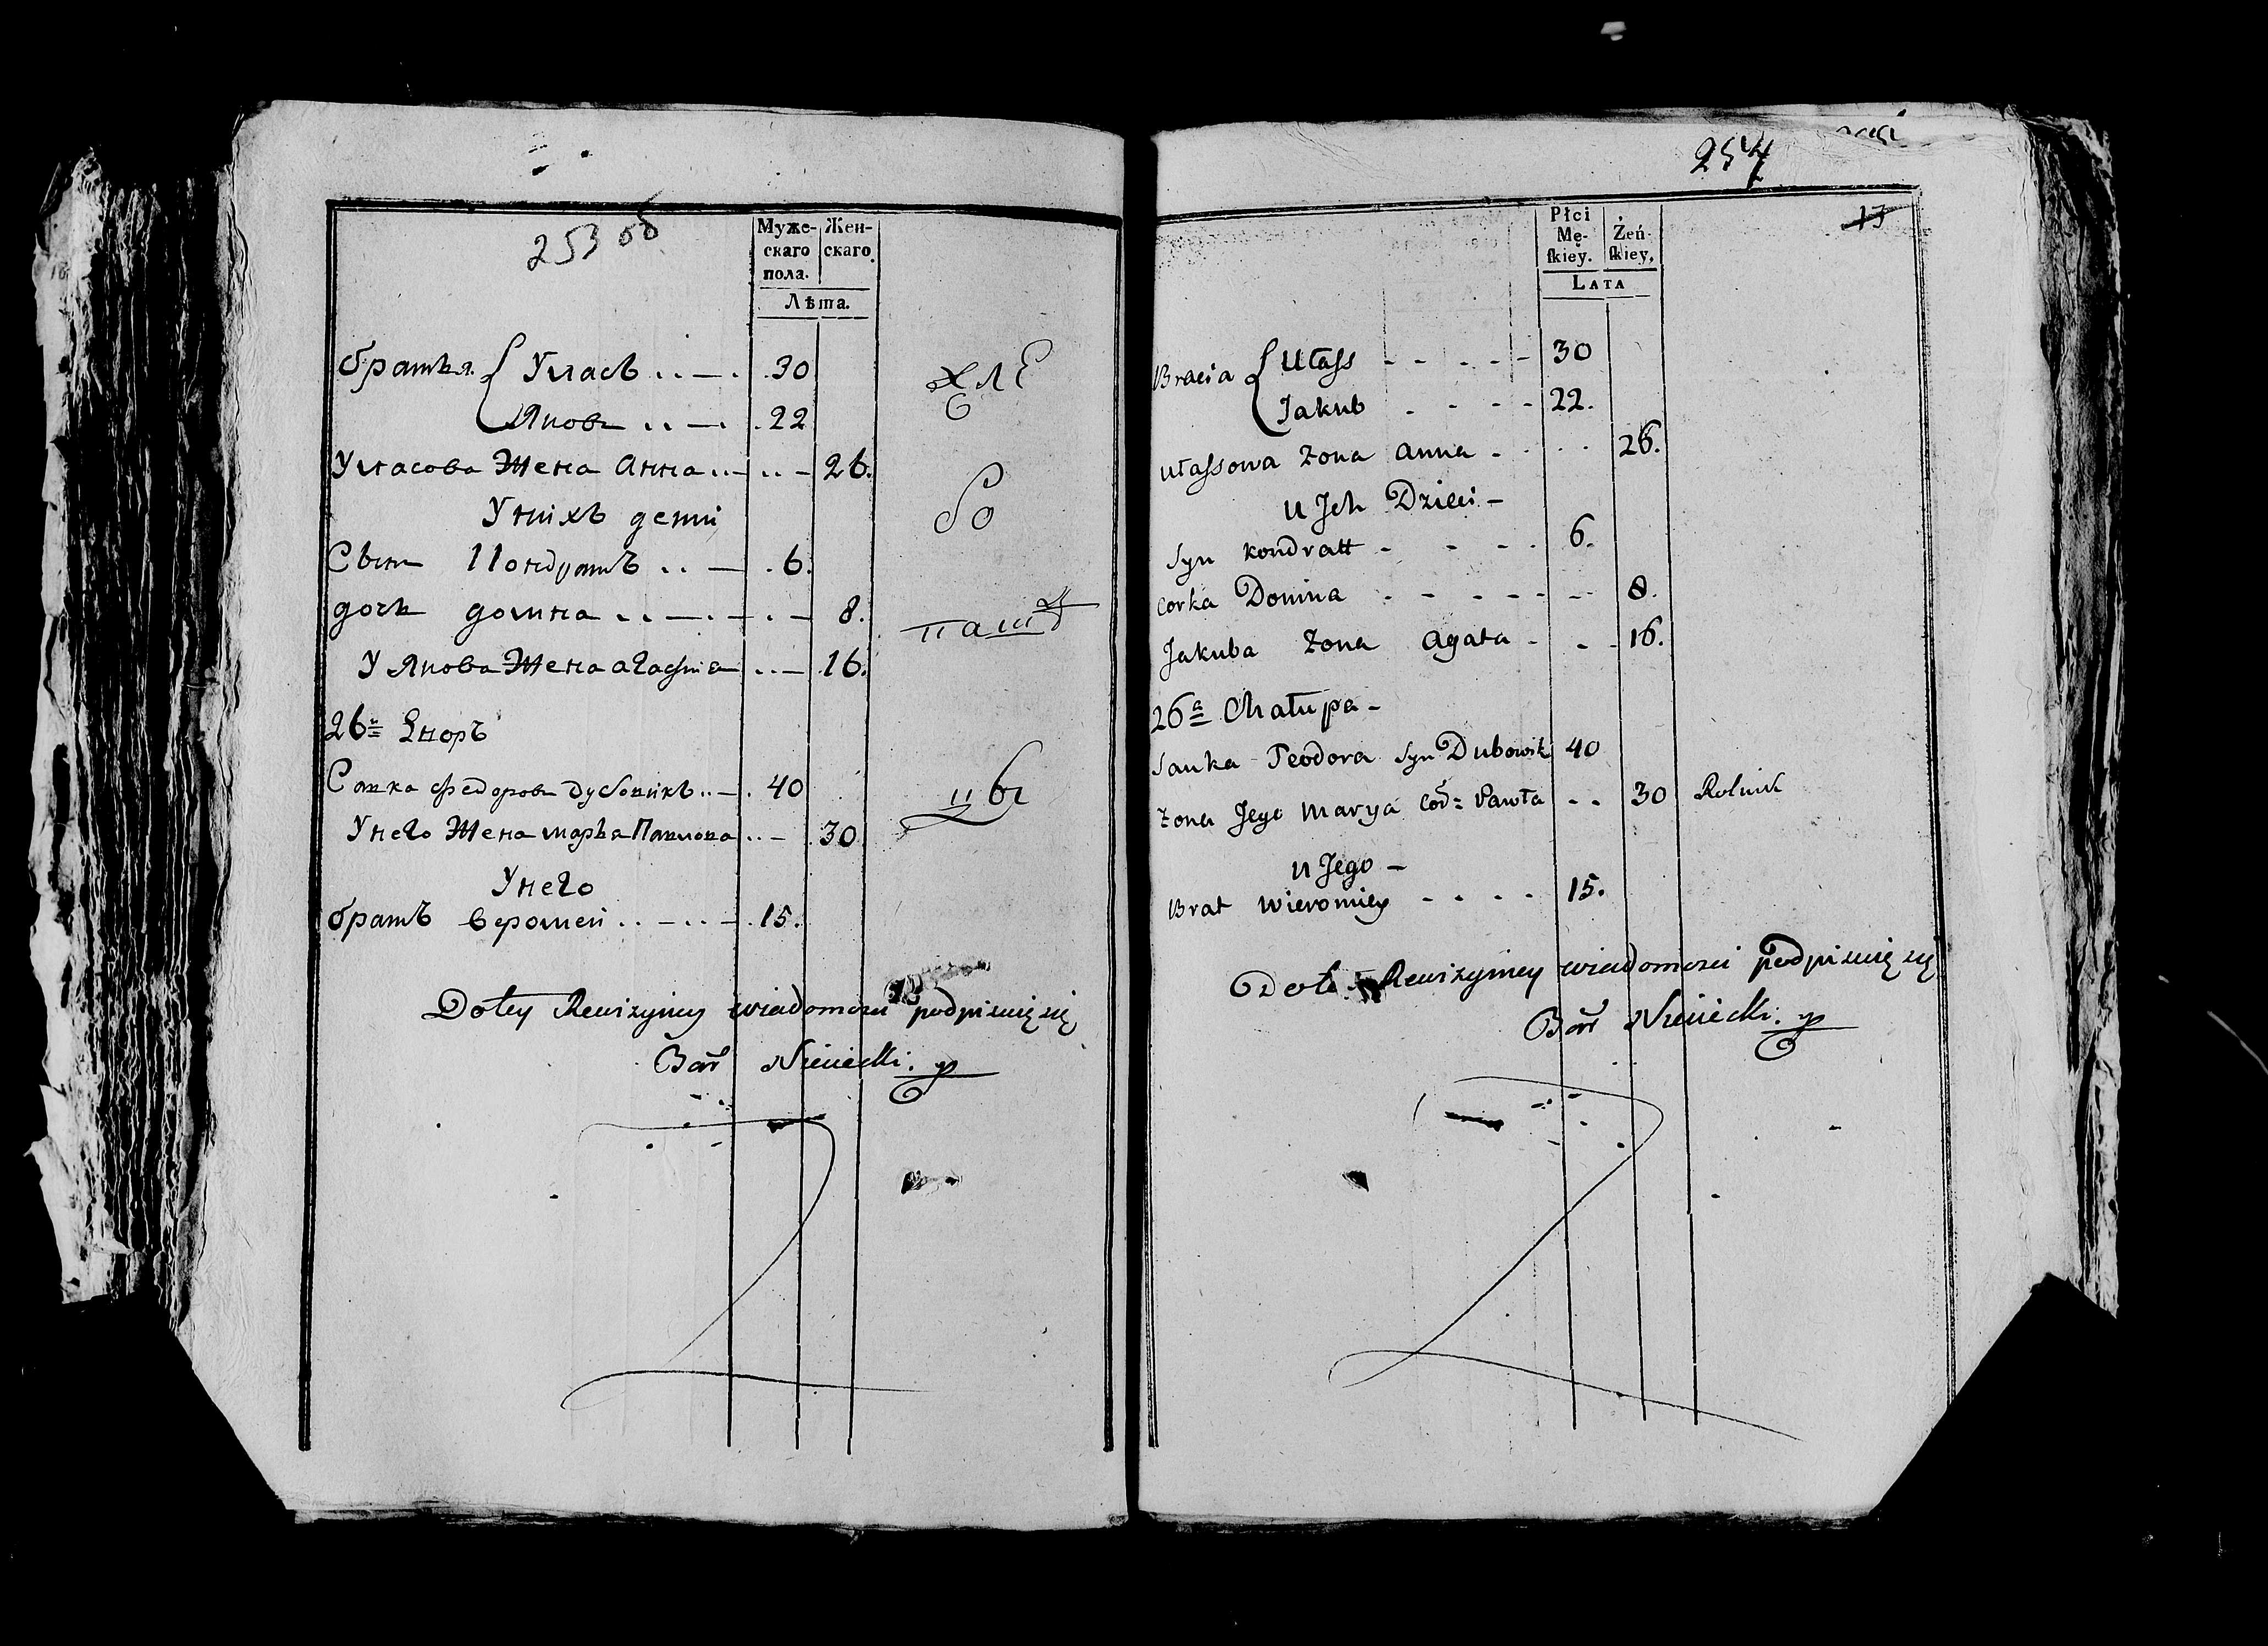 253 об
Муже-
скаго
пола.
Жен-
скаго
Лѣта.
братья Уласъ 30
Яковъ 22
Уласова Жена Анна 26.
У нихъ дети
Сынъ Кондратъ 6.
дочь домна 8.
У Якова Жена агафия 16.
26й Дворъ
Савка Федоровъ Дубовикъ 40
У него Жена марья Павлова 30
У него
братъ веромей 15.
хле
бо
паш
цы
Do tey Rewizyiney wiadomosci podpisuię się
Niesiecki. p
254
13
Płci
Mę-
skiey.
Żeń-
skiey.
LATA
Bracia Ułass 30
Jakub 22.
Ułassowa żona Anna 26.
U Jch Dzieci
Syn Kondratt 6.
Corka Domna 8.
Jakuba żona Agata 16.
26a Chałupa
Sauka Teodora Syn Dubowik 40
żona Jego Marya Cór: Pawła 30 Rolnik
U Jego
Brat Wieromiey 15.
Do te Rewizyiney wiadomosci podpisuię się
Niesiecki. p